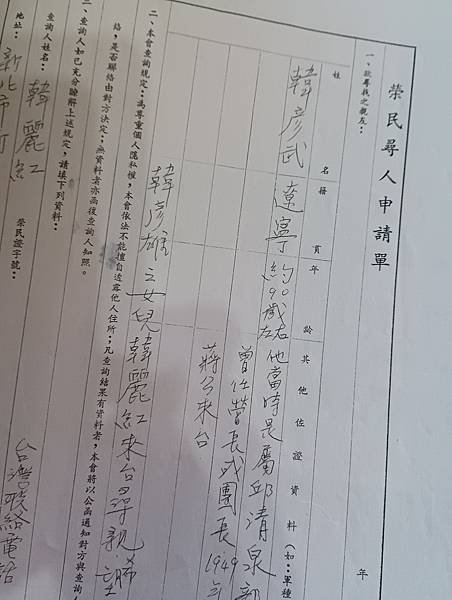 榮民尋人申請單
年
一、欲尋找之親友：
姓名 籍貫 年齡 其他佐證資料（如：軍種
韓彥武 遼寧 約90歲左右 他當時是屬邱清泉部
曾任營長或團長1949年
蔣公來台
韓彥雄之女兒韓麗紅來台尋親望
二、本會查詢規定：為尊重個人隱私權，本會依法不能擅自透露他人住所；凡查詢結果有資料者，本會將以公函通知對方與查詢人
絡，是否聯絡由對方決定；無資料者亦函復查詢人知照。
三、查詢人如已充分瞭解上述規定，請填下列資料：
查詢人姓名：韓麗紅 榮民證字號：
地址：新北市 台灣聯絡電話